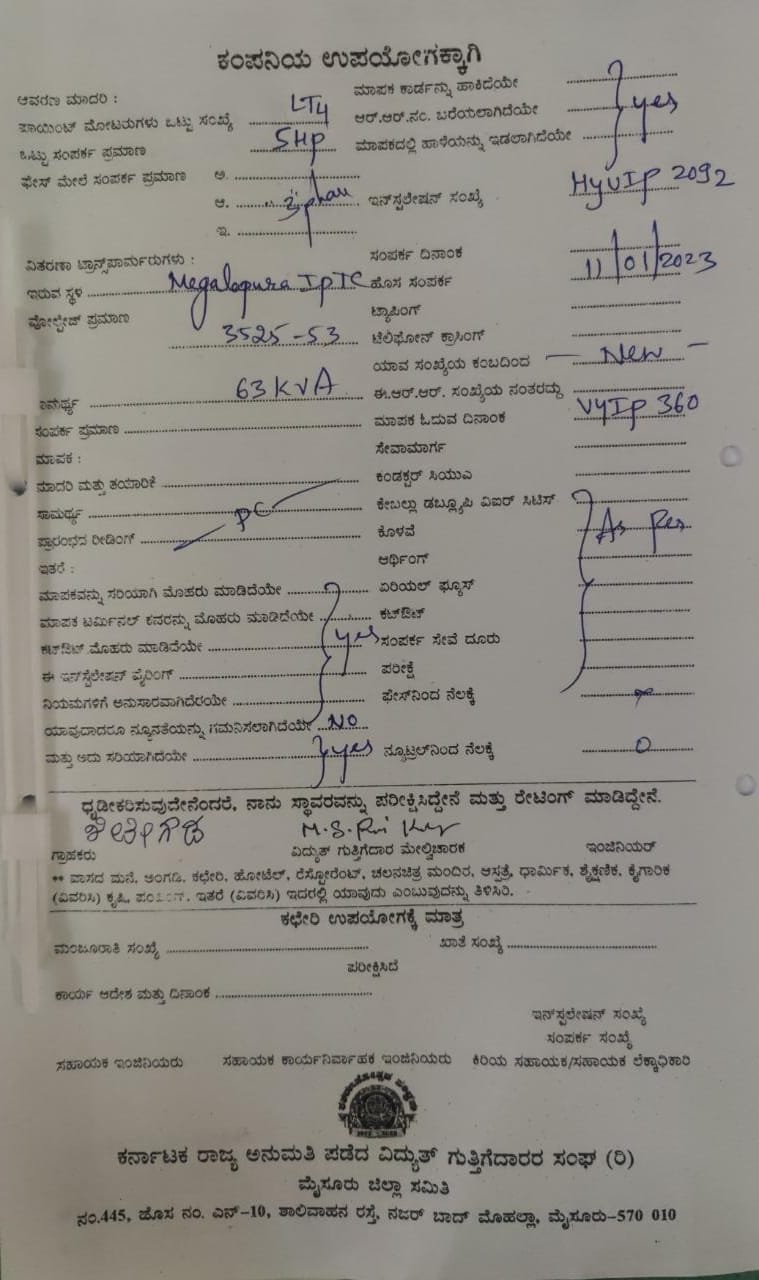 ಕಂಪನಿಯ ಉಪಯೋಗಕ್ಕಾಗಿ
ಆವರಣ ಮಾದರಿ :
ಪಾಯಿಂಟ್ ಮೋಟರುಗಳು ಒಟ್ಟು ಸಂಖ್ಯೆ LT4
ಒಟ್ಟು ಸಂಪರ್ಕ ಪ್ರಮಾಣ 5HP
ಫೇಸ್ ಮೇಲೆ ಸಂಪರ್ಕ ಪ್ರಮಾಣ ಅ.
ಆ. 3 phase
ಇ.
ವಿತರಣಾ ಟ್ರಾನ್ಸ್‌ಪಾರ್ಮರುಗಳು :
ಇರುವ ಸ್ಥಳ Megalapura IP TC
ವೋಲ್ಟೇಜ್ ಪ್ರಮಾಣ
3525-53
ಸಾಮರ್ಥ್ಯ 63 KVA
ಸಂಪರ್ಕ ಪ್ರಮಾಣ
ಮಾಪಕ :
ಮಾದರಿ ಮತ್ತು ತಯಾರಿಕೆ
ಸಾಮರ್ಥ್ಯ
ಪ್ರಾರಂಭದ ರೀಡಿಂಗ್
ಇತರೆ :
ಮಾಪಕವನ್ನು ಸರಿಯಾಗಿ ಮೊಹರು ಮಾಡಿದೆಯೇ
ಮಾಪಕ ಟರ್ಮಿನಲ್ ಕವರನ್ನು ಮೊಹರು ಮಾಡಿದೆಯೇ
ಕಟ್‌ಔಟ್ ಮೊಹರು ಮಾಡಿದೆಯೇ yes
ಈ ಇನ್‌ಸ್ಟಲೇಷನ್ ವೈರಿಂಗ್
ನಿಯಮಗಳಿಗೆ ಅನುಸಾರವಾಗಿದೆಯೇ
ಯಾವುದಾದರೂ ನ್ಯೂನತೆಯನ್ನು ಗಮನಿಸಲಾಗಿದೆಯೇ NO
ಮತ್ತು ಅದು ಸರಿಯಾಗಿದೆಯೇ yes
ಮಾಪಕ ಕಾರ್ಡನ್ನು ಹಾಕಿದೆಯೇ
ಆರ್.ಆರ್.ನಂ. ಬರೆಯಲಾಗಿದೆಯೇ yes
ಮಾಪಕದಲ್ಲಿ ಹಾಳೆಯನ್ನು ಇಡಲಾಗಿದೆಯೇ
ಇನ್‌ಸ್ಪಲೇಷನ್ ಸಂಖ್ಯೆ HYVIP 2092
ಸಂಪರ್ಕ ದಿನಾಂಕ 11/01/2023
ಹೊಸ ಸಂಪರ್ಕ
ಟ್ಯಾಪಿಂಗ್
ಟೆಲಿಫೋನ್ ಕ್ರಾಸಿಂಗ್
ಯಾವ ಸಂಖ್ಯೆಯ ಕಂಬದಿಂದ - New -
ಈ.ಆರ್.ಆರ್. ಸಂಖ್ಯೆಯ ನಂತರದ್ದು
ಮಾಪಕ ಓದುವ ದಿನಾಂಕ VYIP 360
ಸೇವಾಮಾರ್ಗ
ಕಂಡಕ್ಟರ್ ಸಿಯುಎ
ಕೇಬಲ್ಲು ಡಬ್ಲ್ಯೂಪಿ ವಿಐರ್ ಸಿಟಿಸ್
ಕೊಳವೆ As Per
ಆರ್ಥಿಂಗ್
ಏರಿಯಲ್ ಫ್ಯೂಸ್
ಕಟ್‌ಔಟ್
ಸಂಪರ್ಕ ಸೇವೆ ದೂರು
ಪರೀಕ್ಷೆ
ಫೇಸ್‌ನಿಂದ ನೆಲಕ್ಕೆ
ನ್ಯೂಟ್ರಲ್‌ನಿಂದ ನೆಲಕ್ಕೆ 0
ಧೃಡೀಕರಿಸುವುದೇನೆಂದರೆ, ನಾನು ಸ್ಥಾವರವನ್ನು ಪರೀಕ್ಷಿಸಿದ್ದೇನೆ ಮತ್ತು ರೇಟಿಂಗ್ ಮಾಡಿದ್ದೇನೆ.
ಗ್ರಾಹಕರು ವಿದ್ಯುತ್ ಗುತ್ತಿಗೆದಾರ ಮೇಲ್ವಿಚಾರಕ ಇಂಜಿನಿಯರ್
** ವಾಸದ ಮನೆ, ಅಂಗಡಿ, ಕಛೇರಿ, ಹೋಟೆಲ್, ರೆಸ್ಟೋರೆಂಟ್, ಚಲನಚಿತ್ರ ಮಂದಿರ, ಆಸ್ಪತ್ರೆ, ಧಾರ್ಮಿಕ, ಶೈಕ್ಷಣಿಕ, ಕೈಗಾರಿಕ
(ವಿವರಿಸಿ) ಕೃಷಿ, ಇತರೆ (ವಿವರಿಸಿ) ಇದರಲ್ಲಿ ಯಾವುದು ಎಂಬುವುದನ್ನು ತಿಳಿಸಿರಿ.
ಕಛೇರಿ ಉಪಯೋಗಕ್ಕೆ ಮಾತ್ರ
ಮಂಜೂರಾತಿ ಸಂಖ್ಯೆ ಖಾತೆ ಸಂಖ್ಯೆ
ಪರೀಕ್ಷಿಸಿದೆ
ಕಾರ್ಯ ಆದೇಶ ಮತ್ತು ದಿನಾಂಕ
ಇನ್‌ಸ್ಪಲೇಷನ್ ಸಂಖ್ಯೆ
ಸಂಪರ್ಕ ಸಂಖ್ಯೆ
ಸಹಾಯಕ ಇಂಜಿನಿಯರು ಸಹಾಯಕ ಕಾರ್ಯನಿರ್ವಾಹಕ ಇಂಜಿನಿಯರು ಕಿರಿಯ ಸಹಾಯಕ/ಸಹಾಯಕ ಲೆಕ್ಕಾಧಿಕಾರಿ
ಕರ್ನಾಟಕ ರಾಜ್ಯ ಅನುಮತಿ ಪಡೆದ ವಿದ್ಯುತ್ ಗುತ್ತಿಗೆದಾರರ ಸಂಘ (ರಿ)
ಮೈಸೂರು ಜಿಲ್ಲಾ ಸಮಿತಿ
ನಂ.445, ಹೊಸ ನಂ. ಎನ್-10, ಶಾಲಿವಾಹನ ರಸ್ತೆ, ನಜರ್ ಬಾದ್ ಮೊಹಲ್ಲಾ, ಮೈಸೂರು-570 010